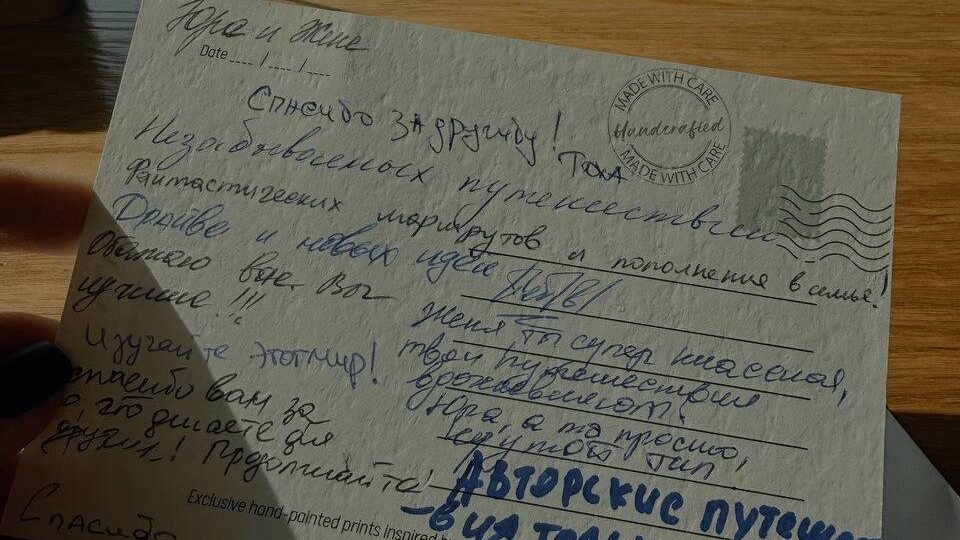 Юра и Жене
Date ___ / ___ / ___
MADE WITH CARE
Handcrafted
MADE WITH CARE
Спасибо за дружбу!
Тата
Незабываемых путешествий
Фантастических маршрутов и пополнение в семье!
Драйва и новых идей
Обожаю вас. Вы
лучшие!!!
Изучайте этот мир!
Спасибо вам за
то, что делаете для
других! Продолжайте!
Спасибо
Женя ты супер классная,
твои путешествия
вдохновляют!
Юра, а ты просто,
крутой тип
Авторские путеше
-вия
Exclusive hand-painted prints inspired b